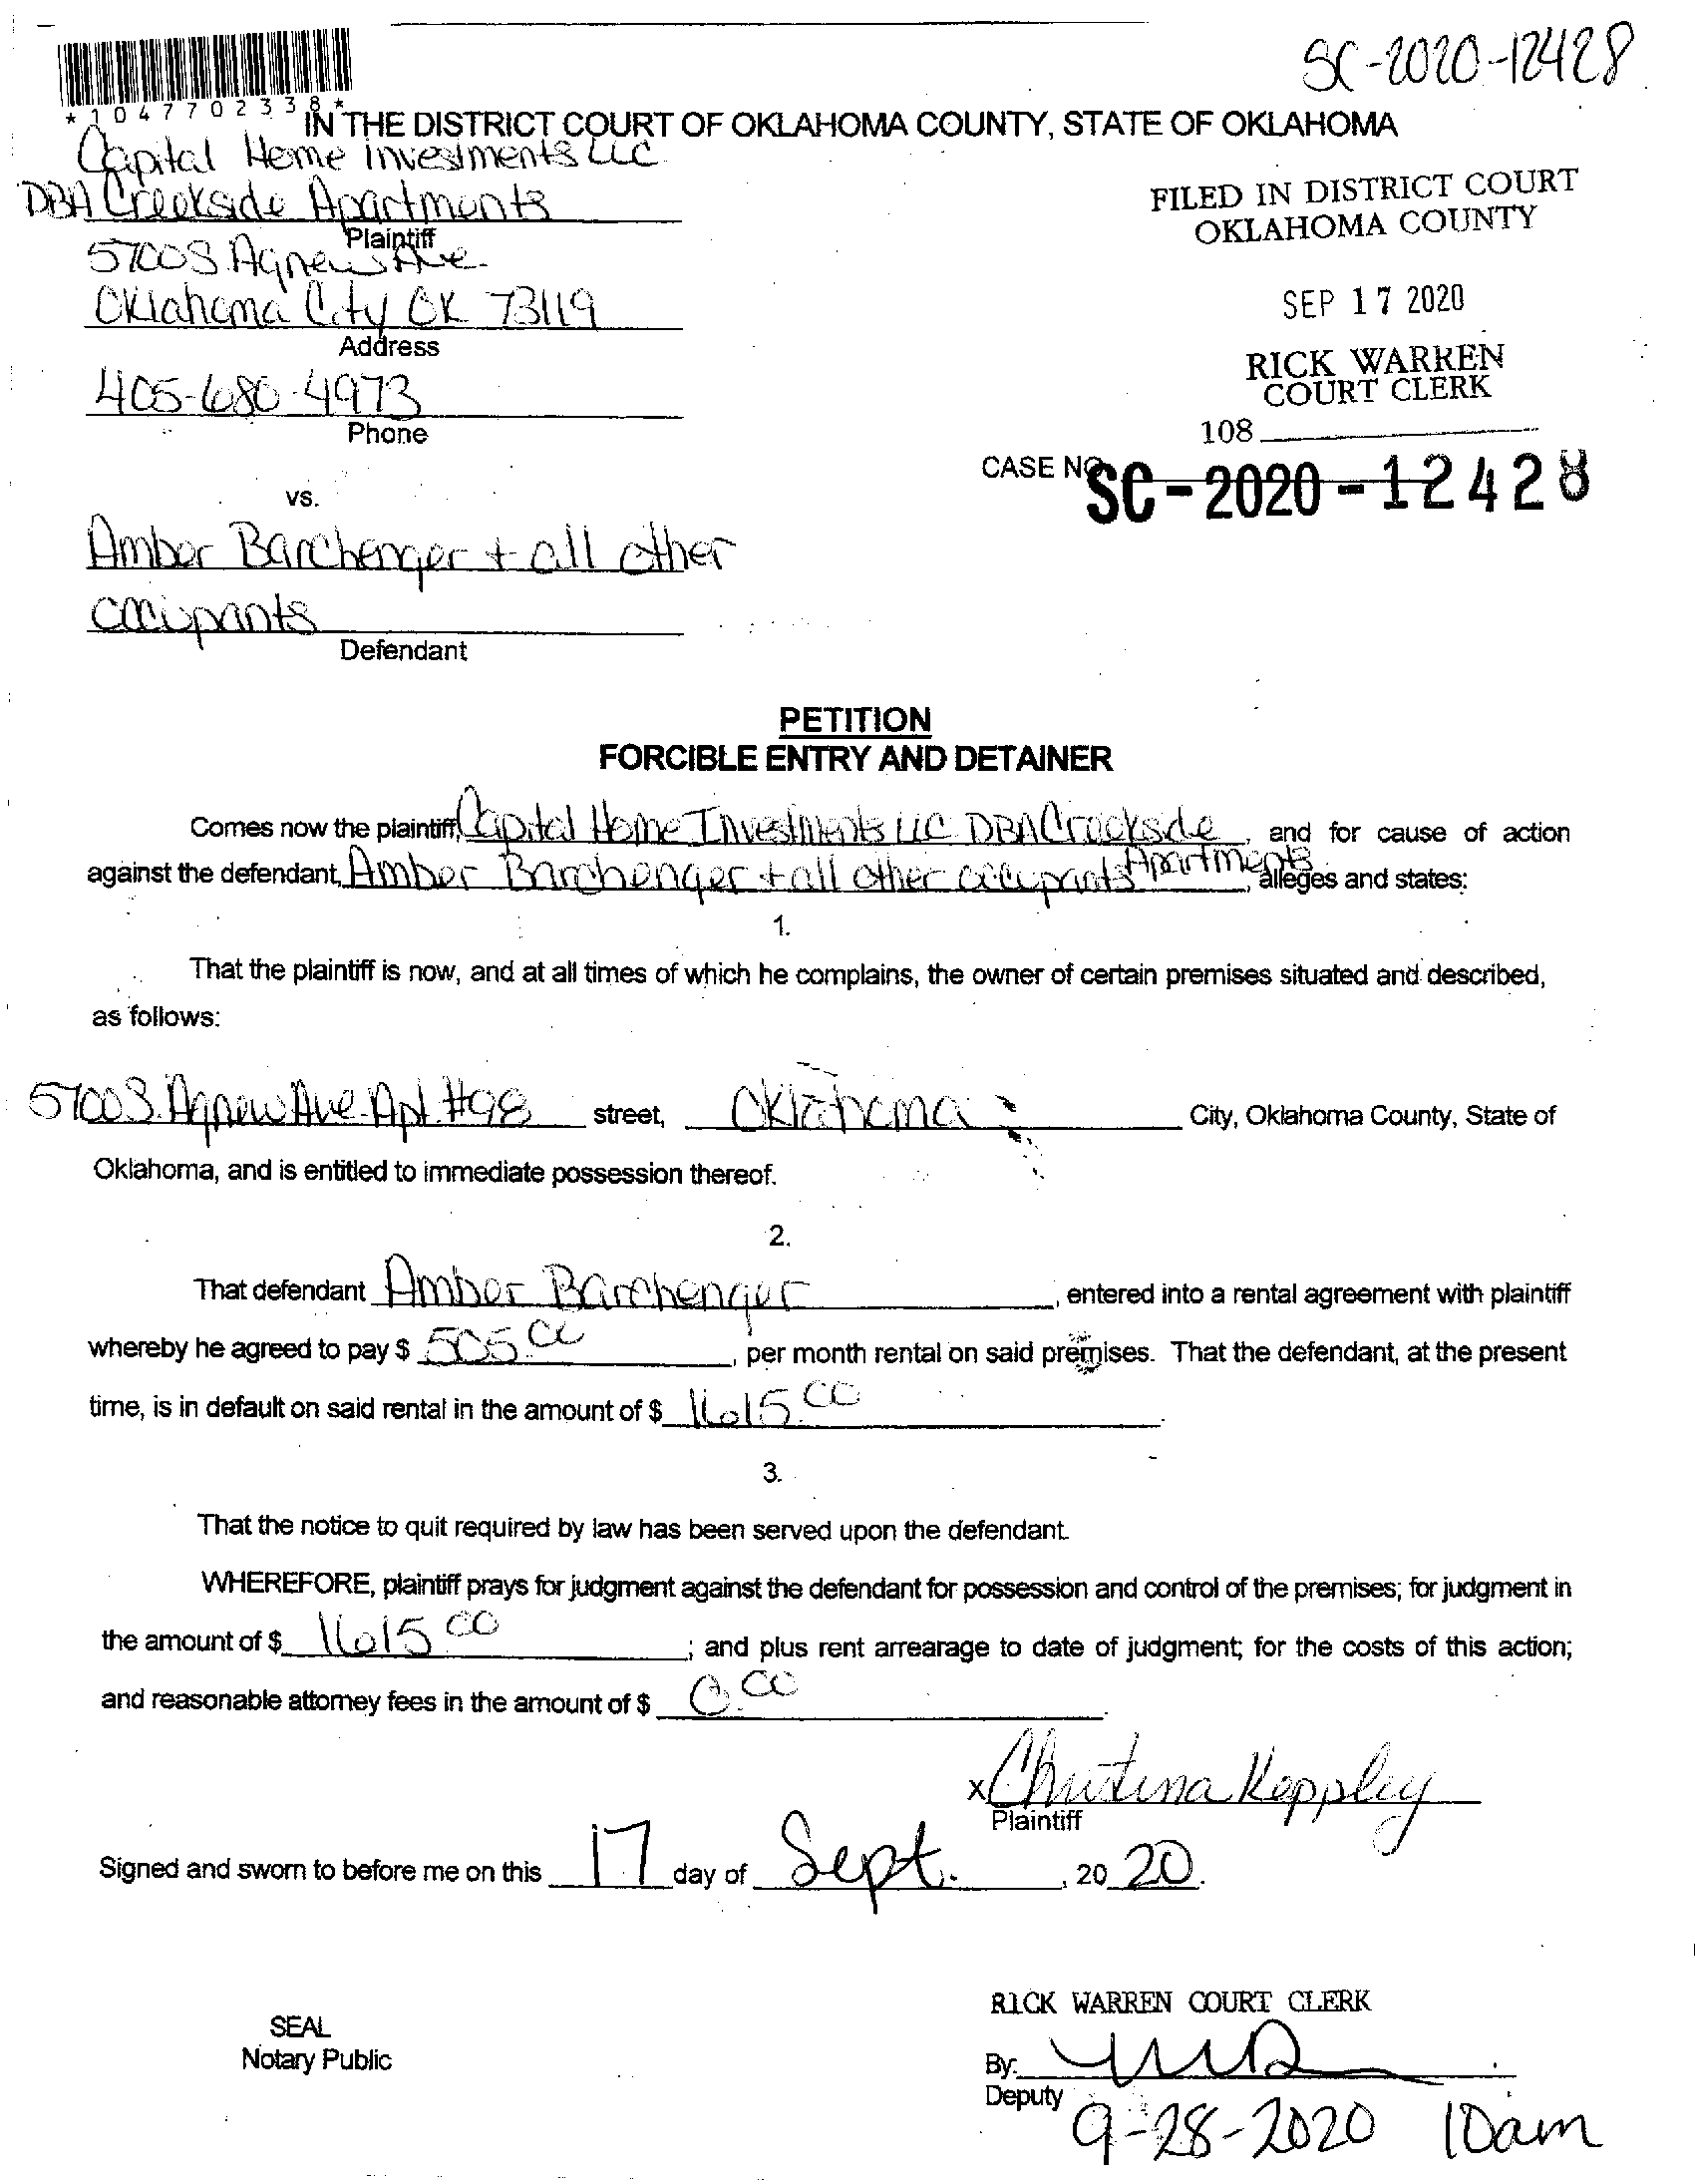 SC-2020-12428
*1047702338*
IN THE DISTRICT COURT OF OKLAHOMA COUNTY, STATE OF OKLAHOMA
Capital Home Investments LLC
DBA Creekside Apartments
Plaintiff
5700 S. Agnew Ave.
Oklahoma City OK 73119
Address
405-680-4973
Phone
FILED IN DISTRICT COURT
OKLAHOMA COUNTY
SEP 17 2020
RICK WARREN
COURT CLERK
108
CASE NO. SC-2020-12428
vs.
Amber Barchenger + all other
occupants
Defendant
PETITION
FORCIBLE ENTRY AND DETAINER
Comes now the plaintiff, Capital Home Investments LLC DBA Creekside Apartments, and for cause of action
against the defendant, Amber Barchenger + all other occupants, alleges and states:
1.
That the plaintiff is now, and at all times of which he complains, the owner of certain premises situated and described,
as follows:
5700 S. Agnew Ave. Apt. #98 street, Oklahoma City, Oklahoma County, State of
Oklahoma, and is entitled to immediate possession thereof.
2.
That defendant Amber Barchenger, entered into a rental agreement with plaintiff
whereby he agreed to pay $ 505.00, per month rental on said premises. That the defendant, at the present
time, is in default on said rental in the amount of $ 1615.00.
3.
That the notice to quit required by law has been served upon the defendant.
WHEREFORE, plaintiff prays for judgment against the defendant for possession and control of the premises; for judgment in
the amount of $ 1615.00; and plus rent arrearage to date of judgment; for the costs of this action;
and reasonable attorney fees in the amount of $ 0.00.
x Christina Keppley
Plaintiff
Signed and sworn to before me on this 17 day of Sept., 20 20.
RICK WARREN COURT CLERK
SEAL
Notary Public
By:
Deputy
9-28-2020 10am